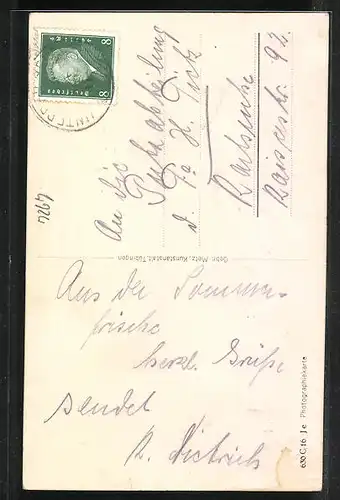 8 8
Deutsches Reich
UNTERR
An die
Putzabteilung
d. Fa. H. Tietz
Karlsruhe
Kaiserstr. 92.
4924
Gebr. Metz, Kunstanstalt, Tübingen
Aus der Sommer-
frische
herzl. Grüße
sendet
R. Dietrich
630 C 16 Je Photographiekarte